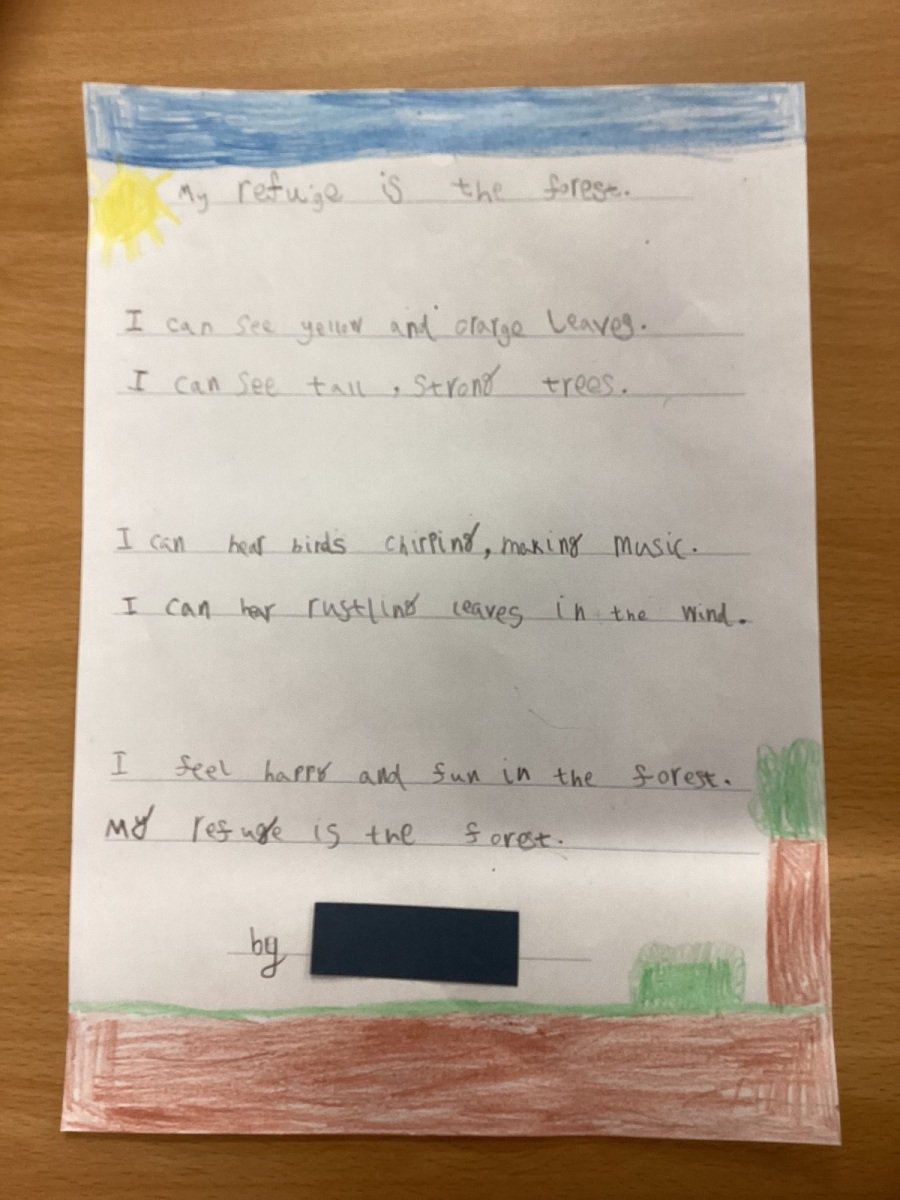 My refuge is the forest.
I can see yellow and orange leaves.
I can see tall, strong trees.
I can hear birds chirping, making music.
I can her rustling leaves in the wind.
I feel happy and fun in the forest.
My refuge is the forest.
by